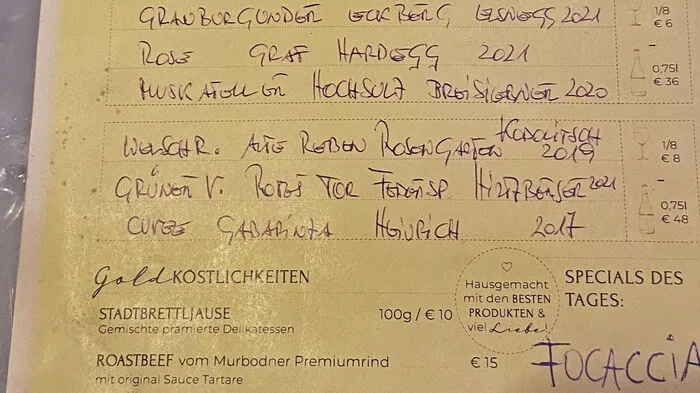 GRAUBURGUNDER ECKBERG ELSNEGG 2021
1/8
€ 6
ROSE GRAF HARDEGG 2021
-
MUSKATELLER HOCHSULZ BREISIERNER 2020
0,75l
€ 36
WELSCHR. ALTE REBEN ROSENGARTEN KODOLITSCH 2019
1/8
€ 8
GRÜNER V. ROTES TOR FEDERSP. HIRTZBERGER 2021
-
CUVEE GABARINZA HEINRICH 2017
0,75l
€ 48
Gold KÖSTLICHKEITEN
STADTBRETTLJAUSE 100g / € 10
Gemischte prämierte Delikatessen
ROASTBEEF vom Murbodner Premiumrind € 15
mit original Sauce Tartare
Hausgemacht
mit den BESTEN
PRODUKTEN &
viel Liebe!
SPECIALS DES
TAGES:
FOCACCIA